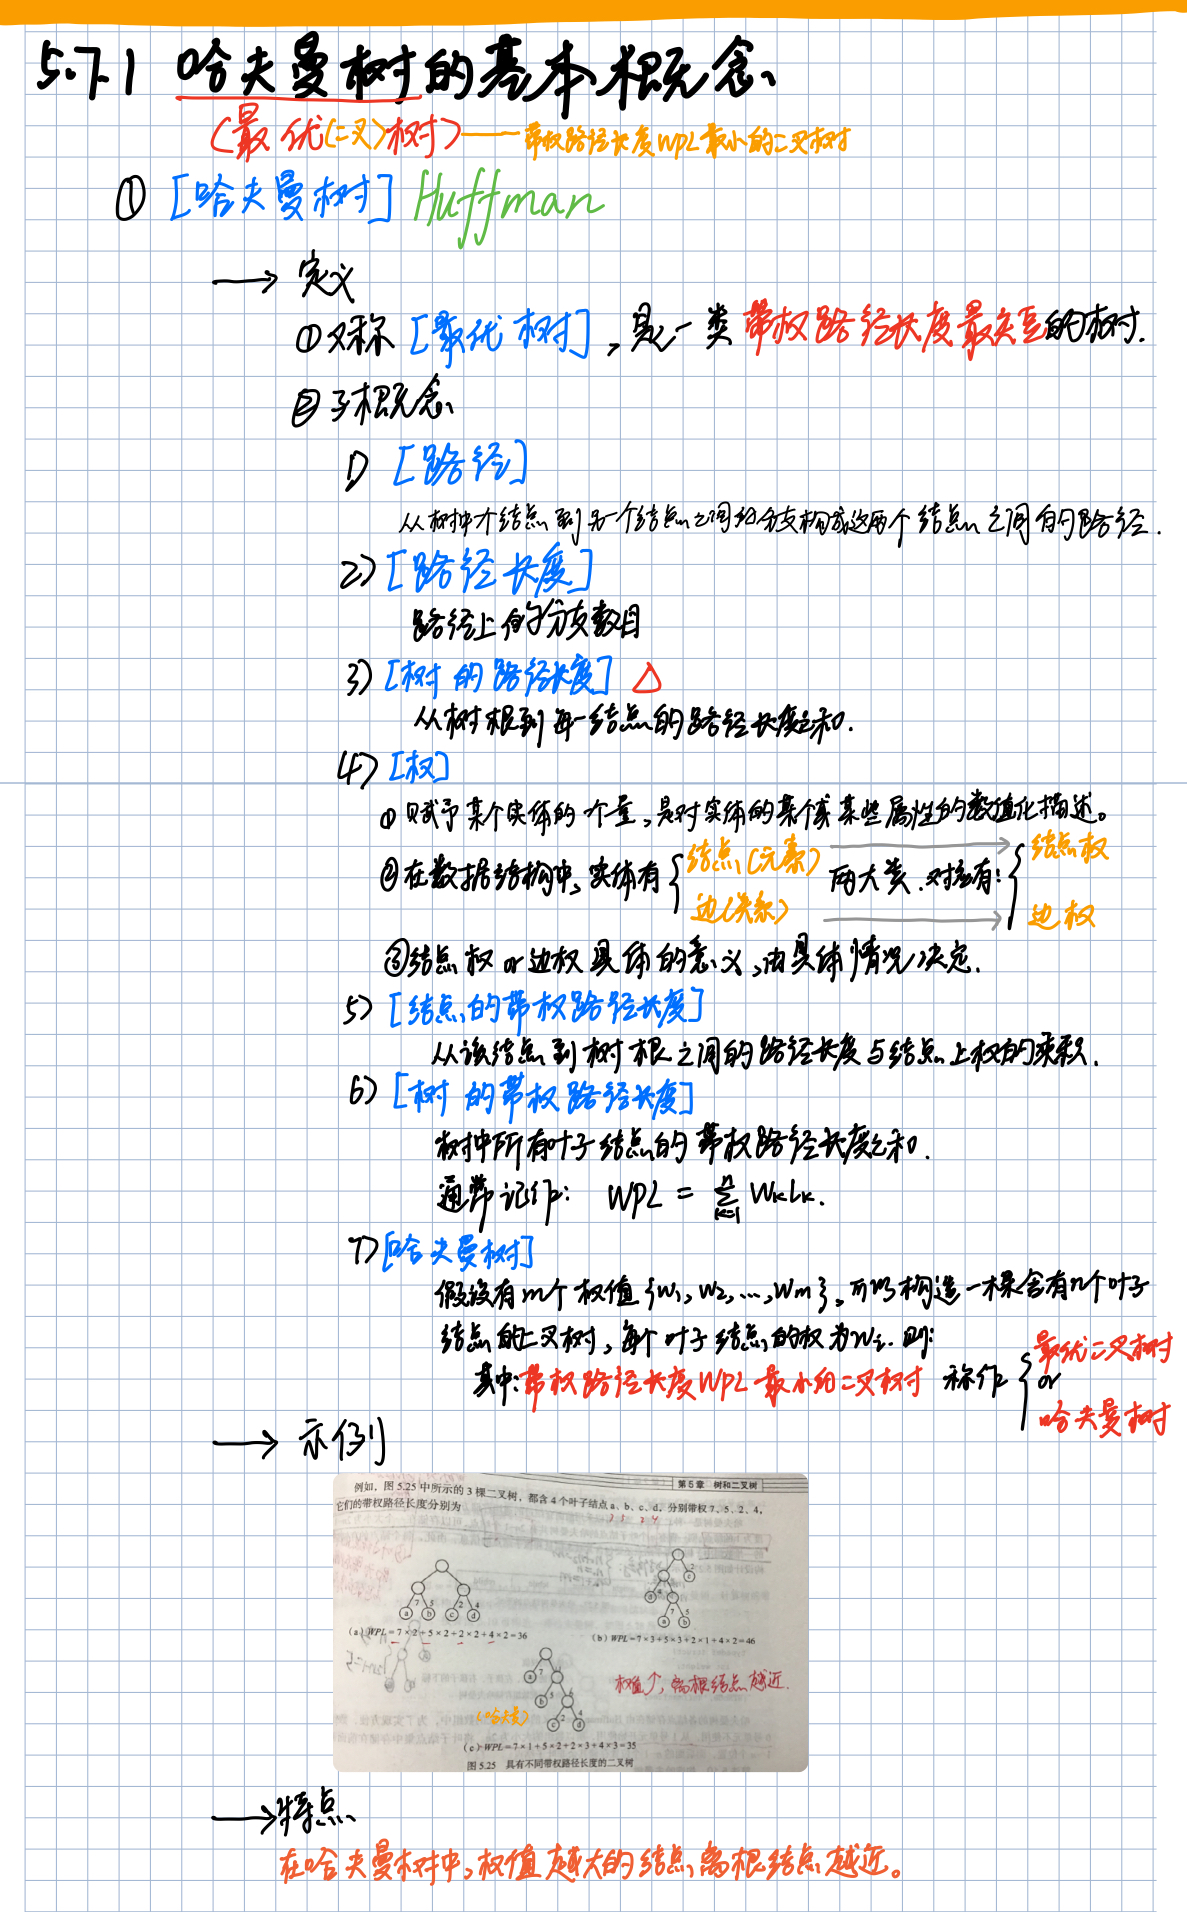 5.7.1 哈夫曼树的基本概念
(最优(二叉)树)——带权路径长度WPL最小的二叉树
① [哈夫曼树] Huffman
→ 定义
①又称[最优树],是一类带权路径长度最短的树.
② 子概念
1) [路径]
从树中个结点到另一个结点之间的分支构成这两个结点之间的路径.
2) [路径长度]
路径上的分支数目
3) [树的路径长度] △
从树根到每一结点的路径长度之和.
4) [权]
① 赋予某个实体的个量,是对实体的某个或某些属性的数值化描述。
②在数据结构中,实体有{结点(元素) 边(关系) 两大类.对应有:{结点权 边权
③结点权or边权具体的意义,由具体情况决定.
5) [结点的带权路径长度]
从该结点到树根之间的路径长度与结点上权的乘积.
6) [树的带权路径长度]
树中所有叶子结点的带权路径长度之和.
通常记作: WPL = n∑k=1 WkLk.
7) [哈夫曼树]
假设有m个权值{w1, w2, ..., wm},可以构造一棵含有n个叶子
结点的二叉树,每个叶子结点的权为wi.则:
其中:带权路径长度WPL最小的二叉树 称作{最优二叉树 or 哈夫曼树
→ 示例
第5章 树和二叉树
例如,图 5.25 中所示的 3 棵二叉树,都含 4 个叶子结点 a、b、c、d,分别带权 7、5、2、4,
它们的带权路径长度分别为
7 5 2 4
a b c d
(a) WPL=7×2+5×2+2×2+4×2=36
2
c
4
d
7 5
a b
(b) WPL=7×3+5×3+2×1+4×2=46
7
a
5
b
2 4
c d
权值↑,离根结点越近.
(哈夫曼)
(c) WPL=7×1+5×2+2×3+4×3=35
图 5.25 具有不同带权路径长度的二叉树
→ 特点
在哈夫曼树中,权值越大的结点离根结点越近。